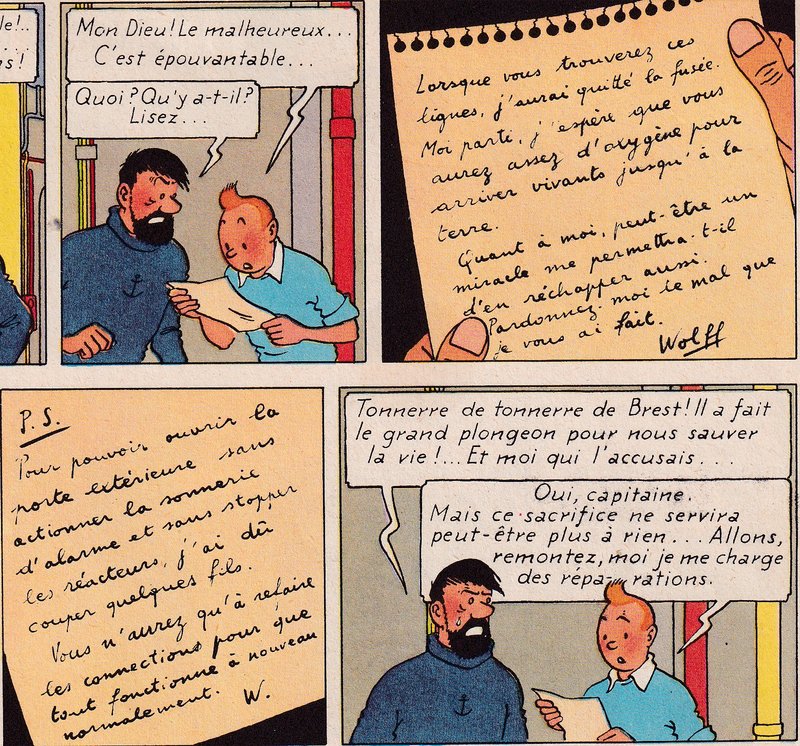 le!..
...
s!
Mon Dieu! Le malheureux...
C'est épouvantable...
Quoi? Qu'y a-t-il?
Lisez...
Lorsque vous trouverez ces
lignes, j'aurai quitté la fusée.
Moi parti, j'espère que vous
aurez assez d'oxygène pour
arriver vivants jusqu'à la
terre.
Quant à moi, peut-être un
miracle me permettra-t-il
d'en réchapper aussi.
Pardonnez-moi le mal que
je vous ai fait.
Wolff
P.S.
Pour pouvoir ouvrir la
porte extérieure sans
actionner la sonnerie
d'alarme et sans stopper
les réacteurs, j'ai dû
couper quelques fils.
Vous n'aurez qu'à refaire
les connections pour que
tout fonctionne à nouveau
normalement.
W.
Tonnerre de tonnerre de Brest! Il a fait
le grand plongeon pour nous sauver
la vie!... Et moi qui l'accusais...
Oui, capitaine.
Mais ce sacrifice ne servira
peut-être plus à rien... Allons,
remontez, moi je me charge
des répa-rations.